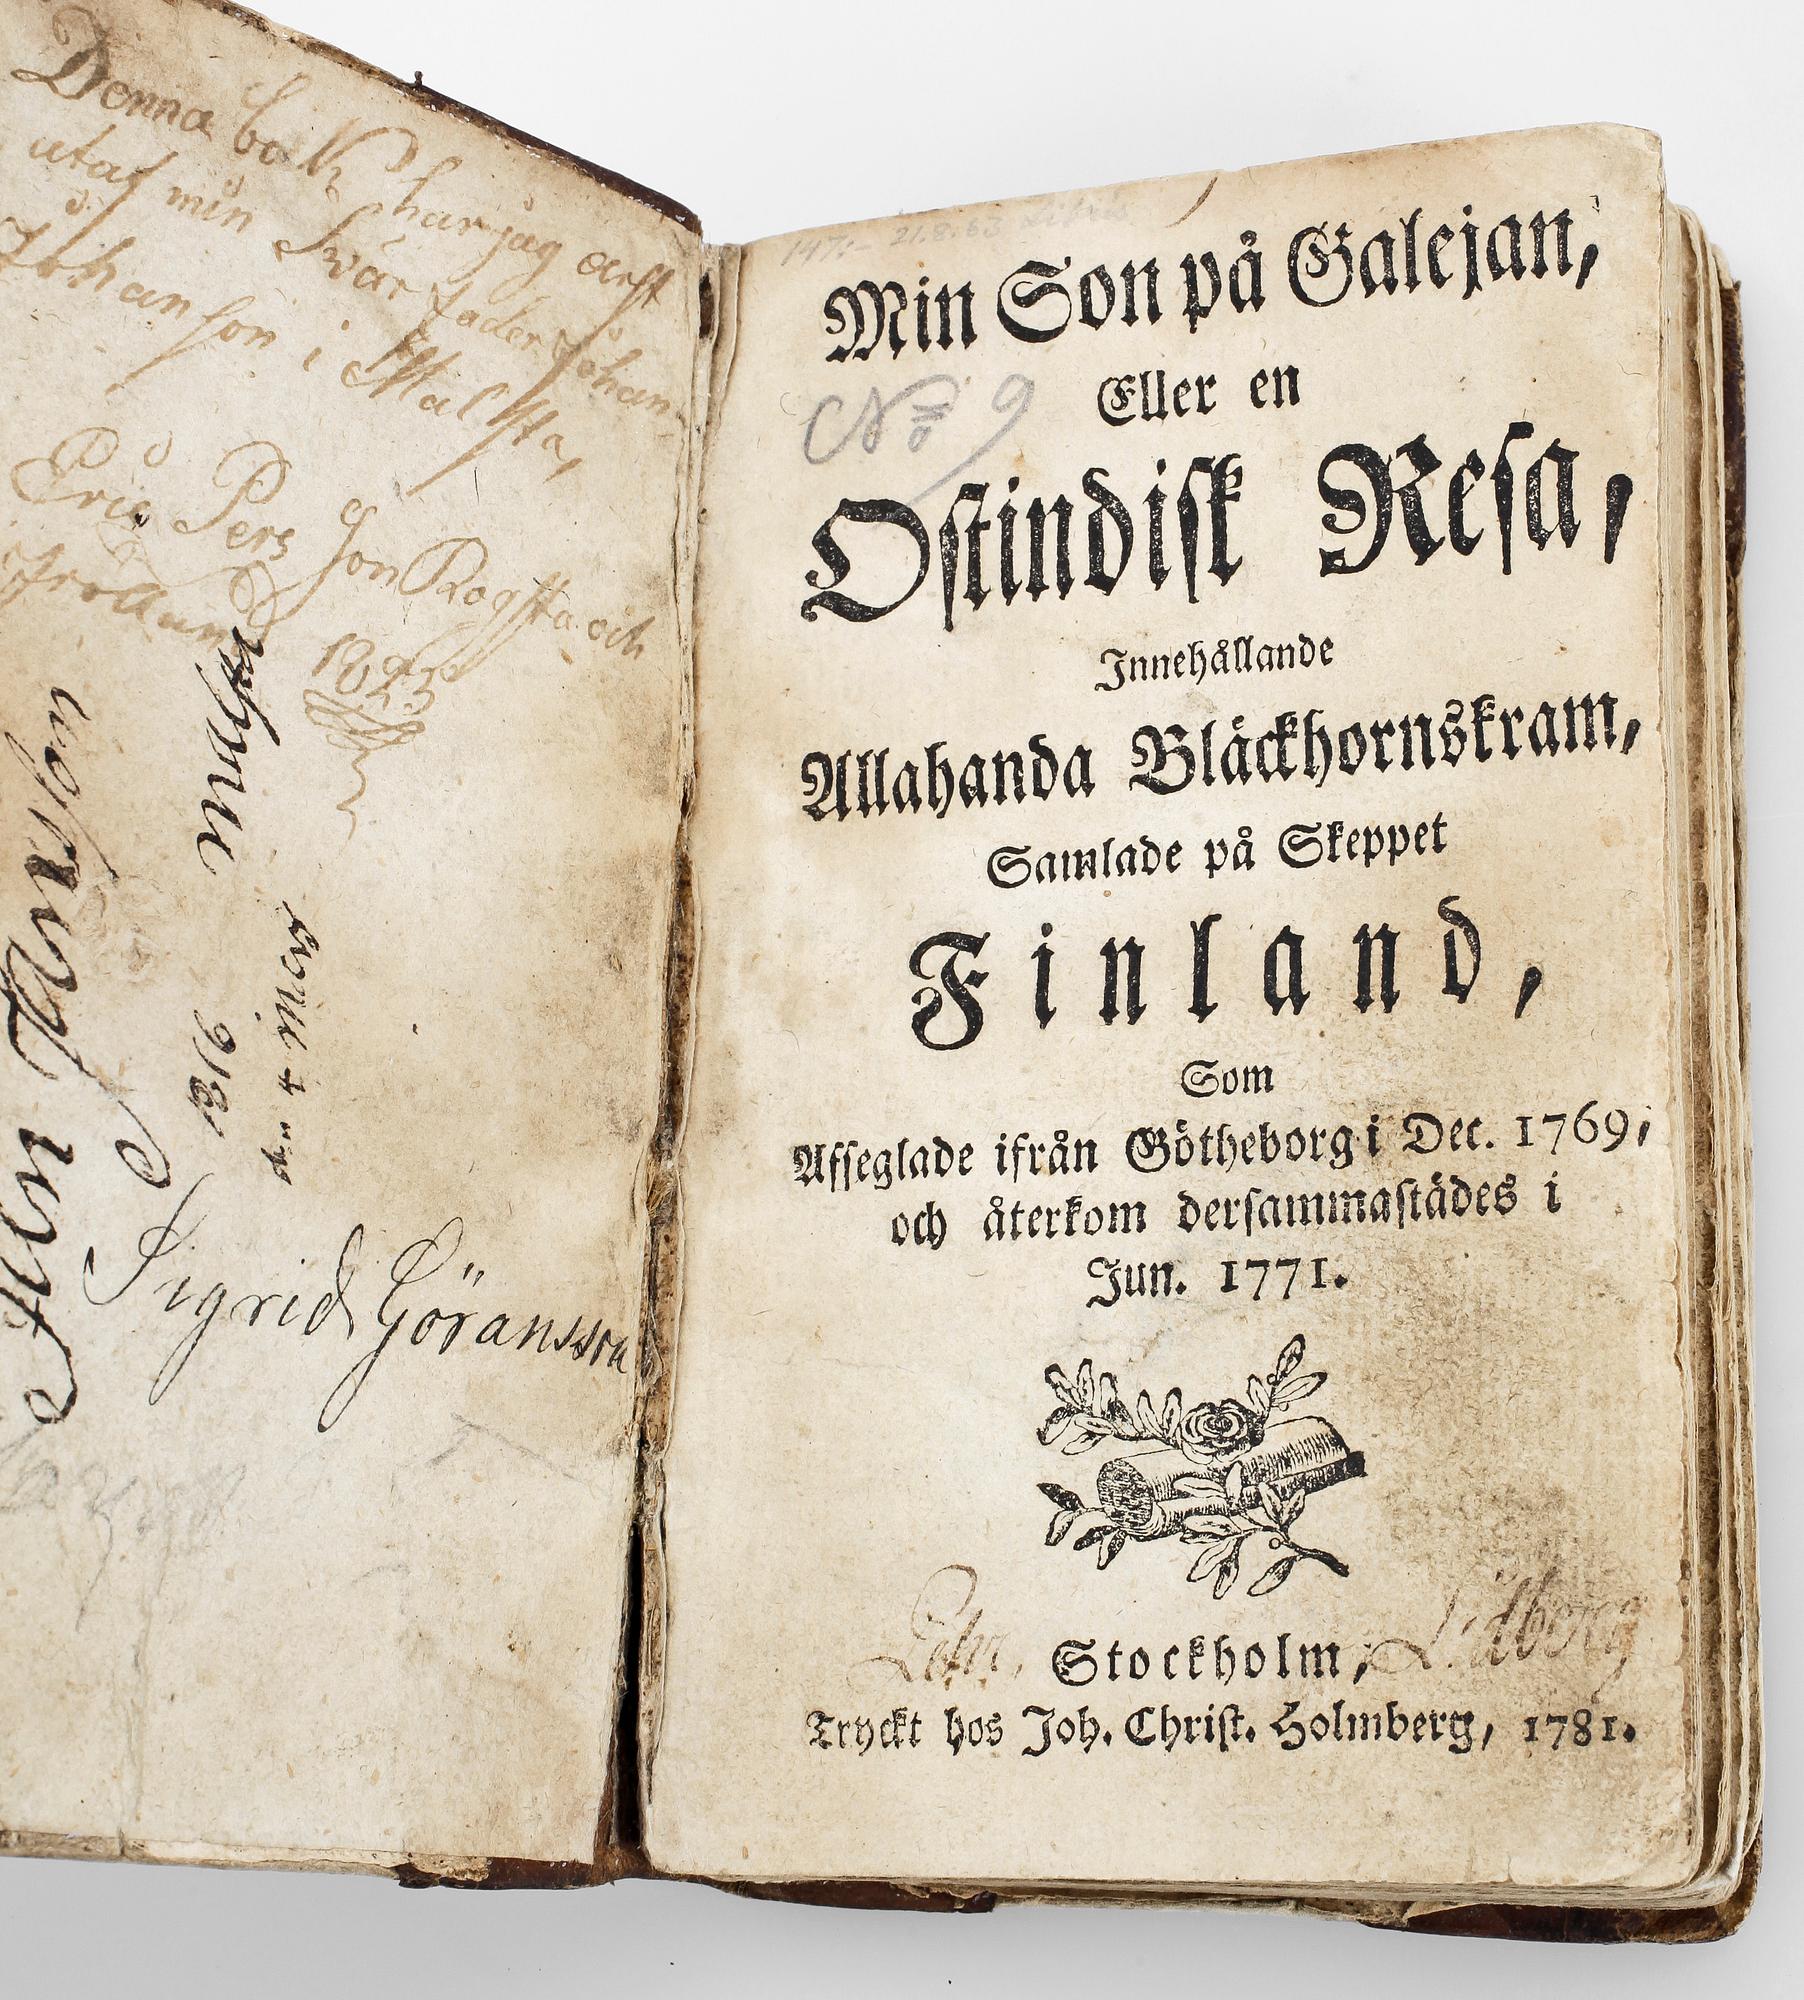 Denna bok har jag ärft
utaf min Svär fader Johan
Johanson i Malsta,
Eric Pers Son Rogsta och
1825
Malsta
1816
den 4 Mars
Sigrid Göransson
147:- 21.8.63
Min Son på Galejan,
Eller en
No 9
Ostindisk Resa,
Innehållande
Allahanda Bläckhornskram,
Samlade på Skeppet
Finland,
Som
Afseglade ifrån Götheborg i Dec. 1769,
och återkom dersammastädes i
Jun. 1771.
Stockholm, Lidberg
Tryckt hos Joh. Christ. Holmberg, 1781.